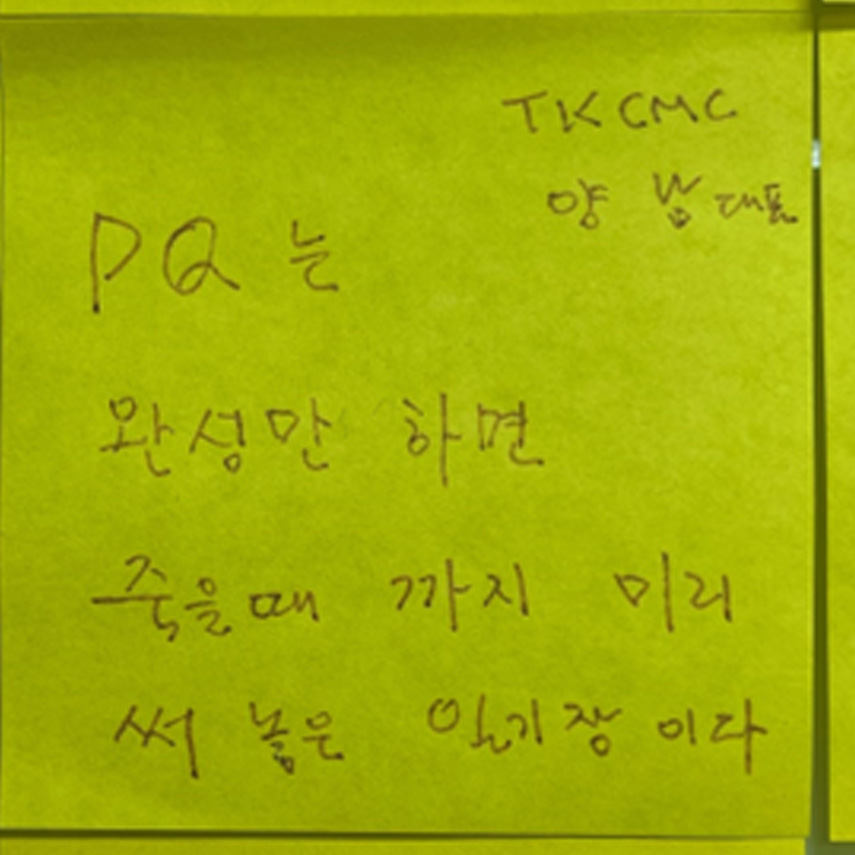 TKCMC
양 대표
PQ 는
완성만 하면
죽을때 까지 미리
써 놓은 일기장 이다